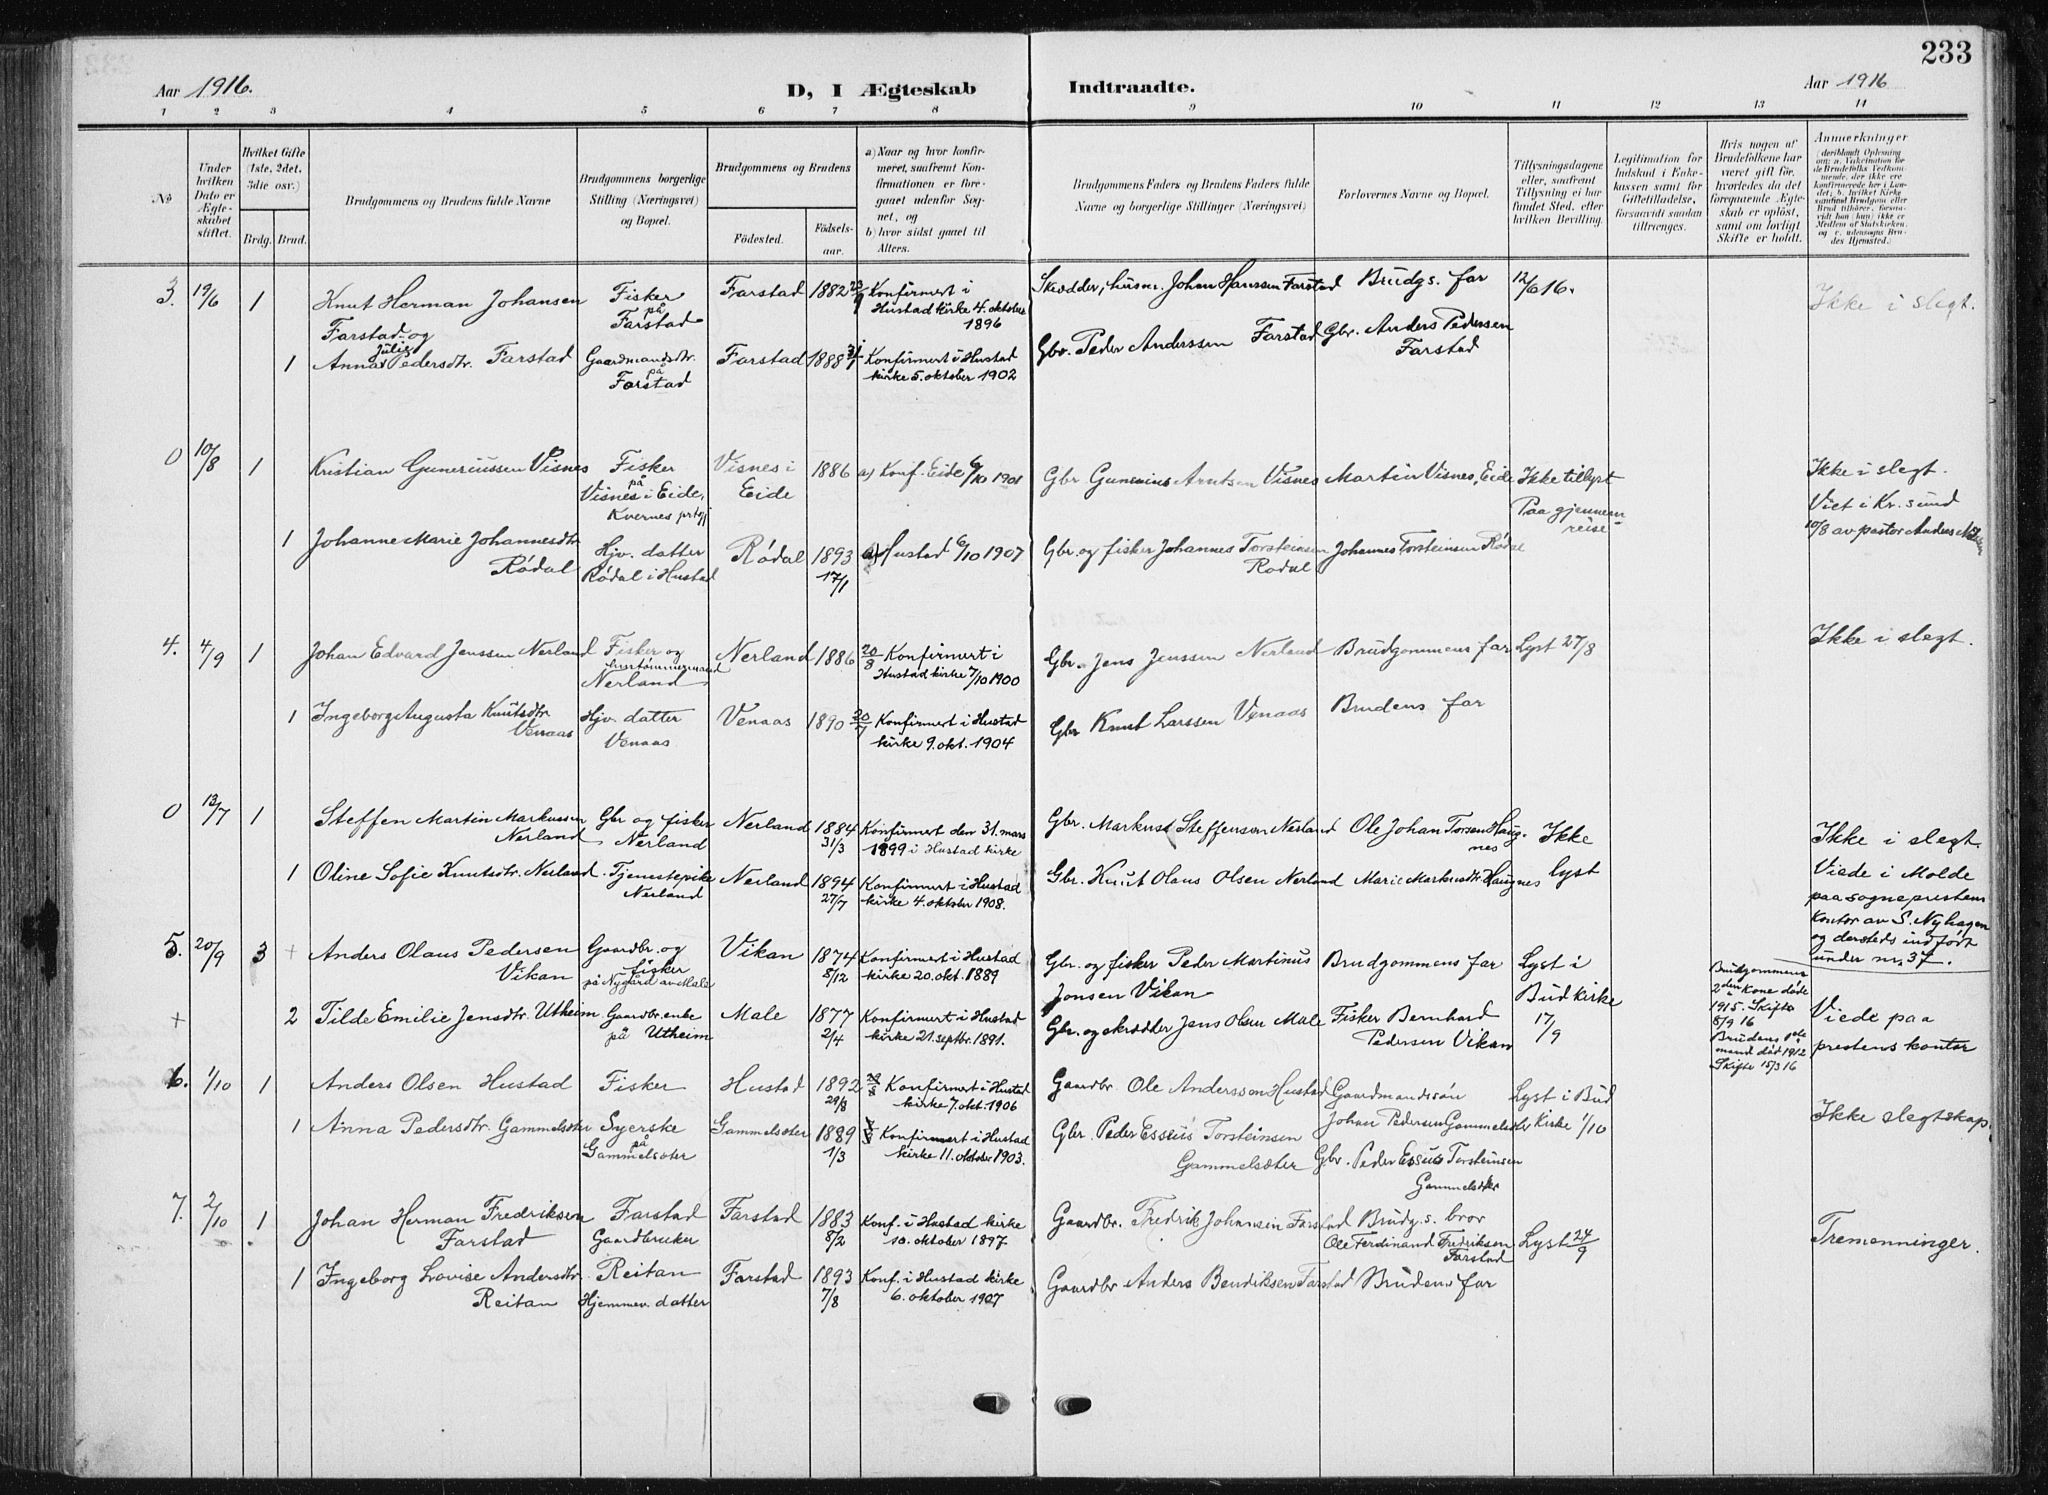 233
Aar 1916.
D, I Ægteskab Indtraadte.
Aar 1916
1 2 3 4 5 6 7 8 9 10 11 12 13 14
No
Under hvilken Dato er Ægteskabet stiftet.
Hvilket Gifte (1ste, 2det, 3die osv.)
Brdg. Brud.
Brudgommens og Brudens fulde Navne
Brudgommens borgerlige Stilling (Næringsvei) og Bopæl.
Brudgommens og Brudens
Fødested. Fødselsaar.
a) Naar og hvor konfirmeret, saafremt Konfirmationen er foregaaet udenfor Sognet, og
b) hvor sidst gaaet til Alters.
Brudgommens Faders og Brudens Faders fulde Navne og borgerlige Stillinger (Næringsvei)
Forlovernes Navne og Bopæl.
Tillysningsdagene eller, saafremt Tillysning ei har fundet Sted, efter hvilken Bevilling.
Legitimation for Indskud i Enkekassen samt for Giftetilladelse, forsaavidt saadan tiltrænges.
Hvis nogen af Brudefolkene har været gift før, hvorledes da det foregaaende Ægteskab er opløst, samt om lovligt Skifte er holdt.
Anmerkninger
3. 19/6 1 Knut Herman Johansen Farstad og
Fisker på Farstad
Farstad 1882
Konfirmert i Hustad kirke 4. oktober 1896
Skrædder, husm. Johan Hanssen Farstad
Brudgs. far
12/6 16.
Ikke i slegt.
1 Anna Julie Pedersdtr. Farstad
Gaardmandsdtr. på Farstad
Farstad 1888
Konfirmert i Hustad kirke 5. oktober 1902
Gbr. Peder Anderssen Farstad
Gbr. Anders Pedersen Farstad
0 10/8 1 Kristian Guneriussen Visnes
Fisker på Visnes i Eide, Kvernes prtgj
Visnes i Eide 1886
a) Konf. Eide 6/10 1901
Gbr Gunerius Arntsen Visnes
Martin Visnes, Eide
Ikke tillyst Paa gjennemreise
Ikke i slegt. Viet i Kr.sund 10/8 av pastor Anders
1 Johanne Marie Johannesdtr Rødal
Hjv. datter Rødal i Hustad
Rødal 1893 17/1
a) Hustad 6/10 1907
Gbr. og fisker Johannes Torsteinsen Rødal
Johannes Torsteinsen Rødal
4. 4/9 1 Johan Edvard Jenssen Nerland
Fisker og hustømmermand Nerland
Nerland 1886 20/8
Konfirmert i Hustad kirke 7/10 1900
Gbr. Jens Jenssen Nerland
Brudgommens far
Lyst 27/8
Ikke i slegt.
1 Ingeborg Augusta Knutsdtr. Venaas
Hjv. datter Venaas
Venaas 1890 20/7
Konfirmert i Hustad kirke 9. okt. 1904
Gbr Knut Larssen Venaas
Brudens far
0 13/7 1 Steffen Martin Markussen Nerland
Gbr og fisker Nerland
Nerland 1884 31/3
Konfirmert den 31. mars 1899 i Hustad kirke
Gbr. Markus Steffensen Nerland
Ole Johan Torsen Haugnes
Ikke lyst
Ikke i slegt. Viede i Molde paa sogneprestens kontor av S. Nyhagen og dersteds indført under nr. 37.
1 Oline Sofie Knutsdtr. Nerland
Tjenestepike Nerland
Nerland 1894 27/7
Konfirmert i Hustad kirke 4. oktober 1908.
Gbr. Knut Olaus Olsen Nerland
Marie Markusdtr. Haugnes
5. 20/9 3 + Anders Olaus Pedersen Vikan
Gaardbr. og fisker på Nygård av Male
Vikan 1874 8/12
Konfirmert i Hustad kirke 20. okt. 1889
Gbr. og fisker Peder Martinus Jonsen Vikan
Brudgommens far
Lyst i Bud kirke 17/9
Brudgommens 2den kone døde 1915. Skifte 8/9 16
Brudens 1ste mand død 1912 Skifte 15/3 16
Viede paa prestens kontor
+ 2 Tilde Emilie Jensdtr. Utheim
Gaardbr.enke på Utheim
Male 1877 2/4
Konfirmert i Hustad kirke 21. septbr. 1891.
Gbr. og skrædder Jens Olsen Male
Fisker Bernhard Pedersen Vikan
6. 1/10 1 Anders Olsen Hustad
Fisker
Hustad 1892 29/8
Konfirmert i Hustad kirke 7. okt. 1906
Gaardbr. Ole Anderssen Hustad
Gaardmandssøn Johan Pedersen Gammelsæter
Lyst i Bud Kirke 1/10
Ikke slegtskap.
1 Anna Pedersdtr. Gammelsæter
Syerske på Gammelsæter
Gammelsæter 1889 1/3
Konfirmert i Hustad kirke 11. oktober 1903.
Gbr. Peder Essius Torsteinsen Gammelsæter
Gbr. Peder Essius Torsteinsen Gammelsæter
7. 2/10 1 Johan Herman Fredriksen Farstad
Farstad Gaardbruker
Farstad 1883 8/2
Konf. i Hustad kirke 10. oktober 1897.
Gaardbr. Fredrik Johansen Farstad
Brudg.s. bror Ole Ferdinand Fredriksen Farstad
Lyst 24/9
Tremenninger.
1 Ingeborg Lovise Andersdtr. Reitan
Reitan Hjemmev. datter
Farstad 1893 7/8
Konf. i Hustad kirke 6. oktober 1907
Gaardbr Anders Bendriksen Farstad
Brudens far